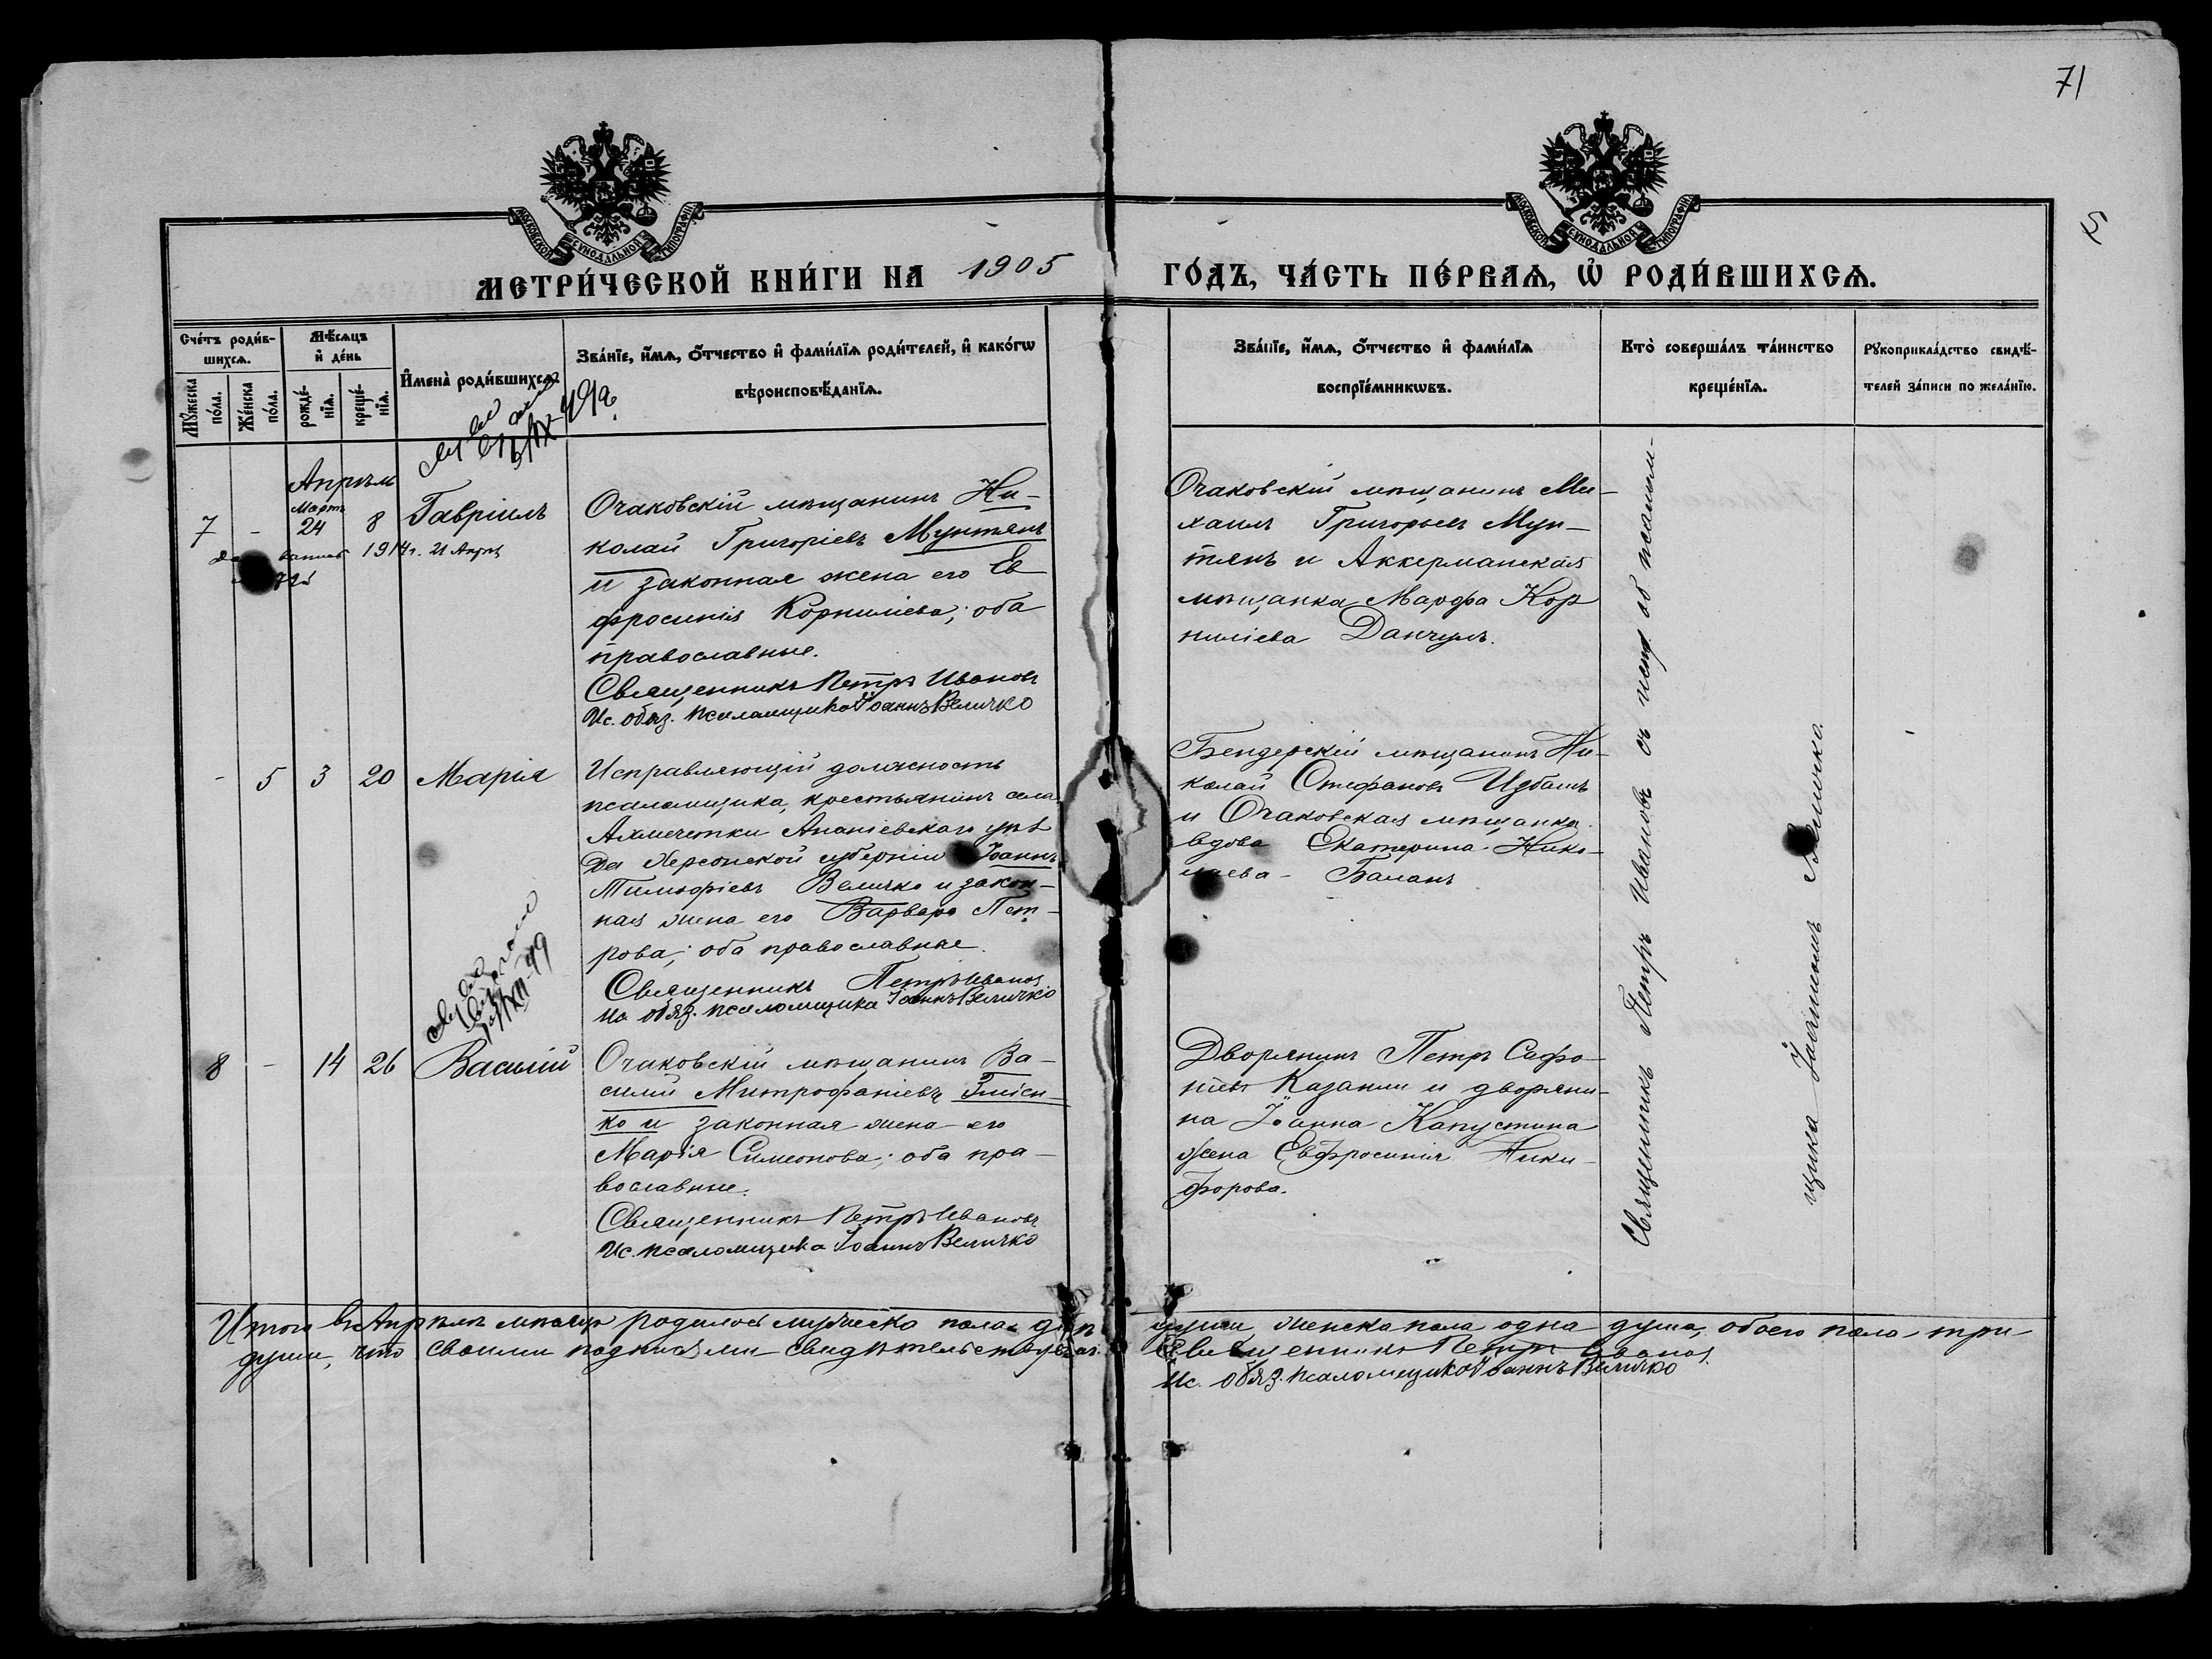 71
5
МОСКОВСКОЙ СѴНОДАЛЬНОЙ ТИПОГРАФІИ
МОСКОВСКОЙ СѴНОДАЛЬНОЙ ТИПОГРАФІИ
МЕТРИ́ЧЕСКОЙ КНИ́ГИ НА 1905 ГО́ДЪ, ЧА́СТЬ ПЕ́РВАѦ, Ѡ҆ РОДИ́ВШИХСѦ.
Сче́тъ роди́в-
шихсѧ.
Мѹ́жеска по́ла.
Же́нска по́ла.
Мѣ́сѧцъ
и҆ де́нь
рожде́-
нїѧ.
креще́-
нїѧ.
И҆мена̀ роди́вшихсѧ.
Зва́нїе, и҆́мѧ, ѻ҆́тчество и҆ фами́лїѧ роди́телей, и҆ како́гѡ
вѣроисповѣ́данїѧ.
Зва́нїе, и҆́мѧ, ѻ҆́тчество и҆ фами́лїѧ
воспрїе́мникѡвъ.
Кто̀ соверша́лъ та́инство
креще́нїѧ.
Рꙋкоприкла́дство свидѣ́-
телей за́писи по жела́нїю.
Апрѣль
Мартъ
7 - 24 8 Гавріилъ
1914 г. 21 Апр
Очаковскій мѣщанинъ Ни-
колай Григоріевъ Мунтянъ
и законная жена его Ев
фросинія Корниліева; оба
православные.
Священникъ Петръ Ивановъ
Ис. обяз. псаломщика Іоаннъ Величко
Очаковскій мѣщанинъ Ми-
хаилъ Григорьевъ Мун-
тянъ и Аккерманская
мѣщанка Марфа Кор
ниліева Данчулъ.
- 5 3 20 Марія
Исправляющій должность
псаломщика, крестьянинъ села
Ахмечетки Ананіевскаго уѣз
да Херсонской губерніи Іоаннъ
Тимофіевъ Величко и закон-
ная жена его Варвара Пет-
рова; оба православные.
Священникъ Петръ Ивановъ
Ис обяз. псаломщика Іоаннъ Величко
Бендерскій мѣщанинъ Ни-
колай Стефановъ Избашъ
и Очаковская мѣщанка
вдова Екатерина Нико-
лаева Баланъ
8 - 14 26 Василій
Очаковскій мѣщанинъ Ва-
силій Митрофаніевъ Зміен-
ко и законная жена его
Марія Симеонова; оба пра-
вославные.
Священникъ Петръ Ивановъ
Ис. псаломщика Іоаннъ Величко
Дворянинъ Петръ Сафро-
ніевъ Казанли и дворяни-
на Іоанна Капустина
жена Евфросинія Ники-
форова.
Священникъ Петръ Ивановъ съ исп. об псалом-
щика Іоанномъ Величко.
Итого въ Апрѣлѣ мѣсяцѣ родилось мужеска пола двѣ души женска пола одна душа, обоего пола три
души, что своими подписями свидѣтельствуемъ. Священникъ Петръ Ивановъ
Ис. обяз. псаломщика Іоаннъ Величко